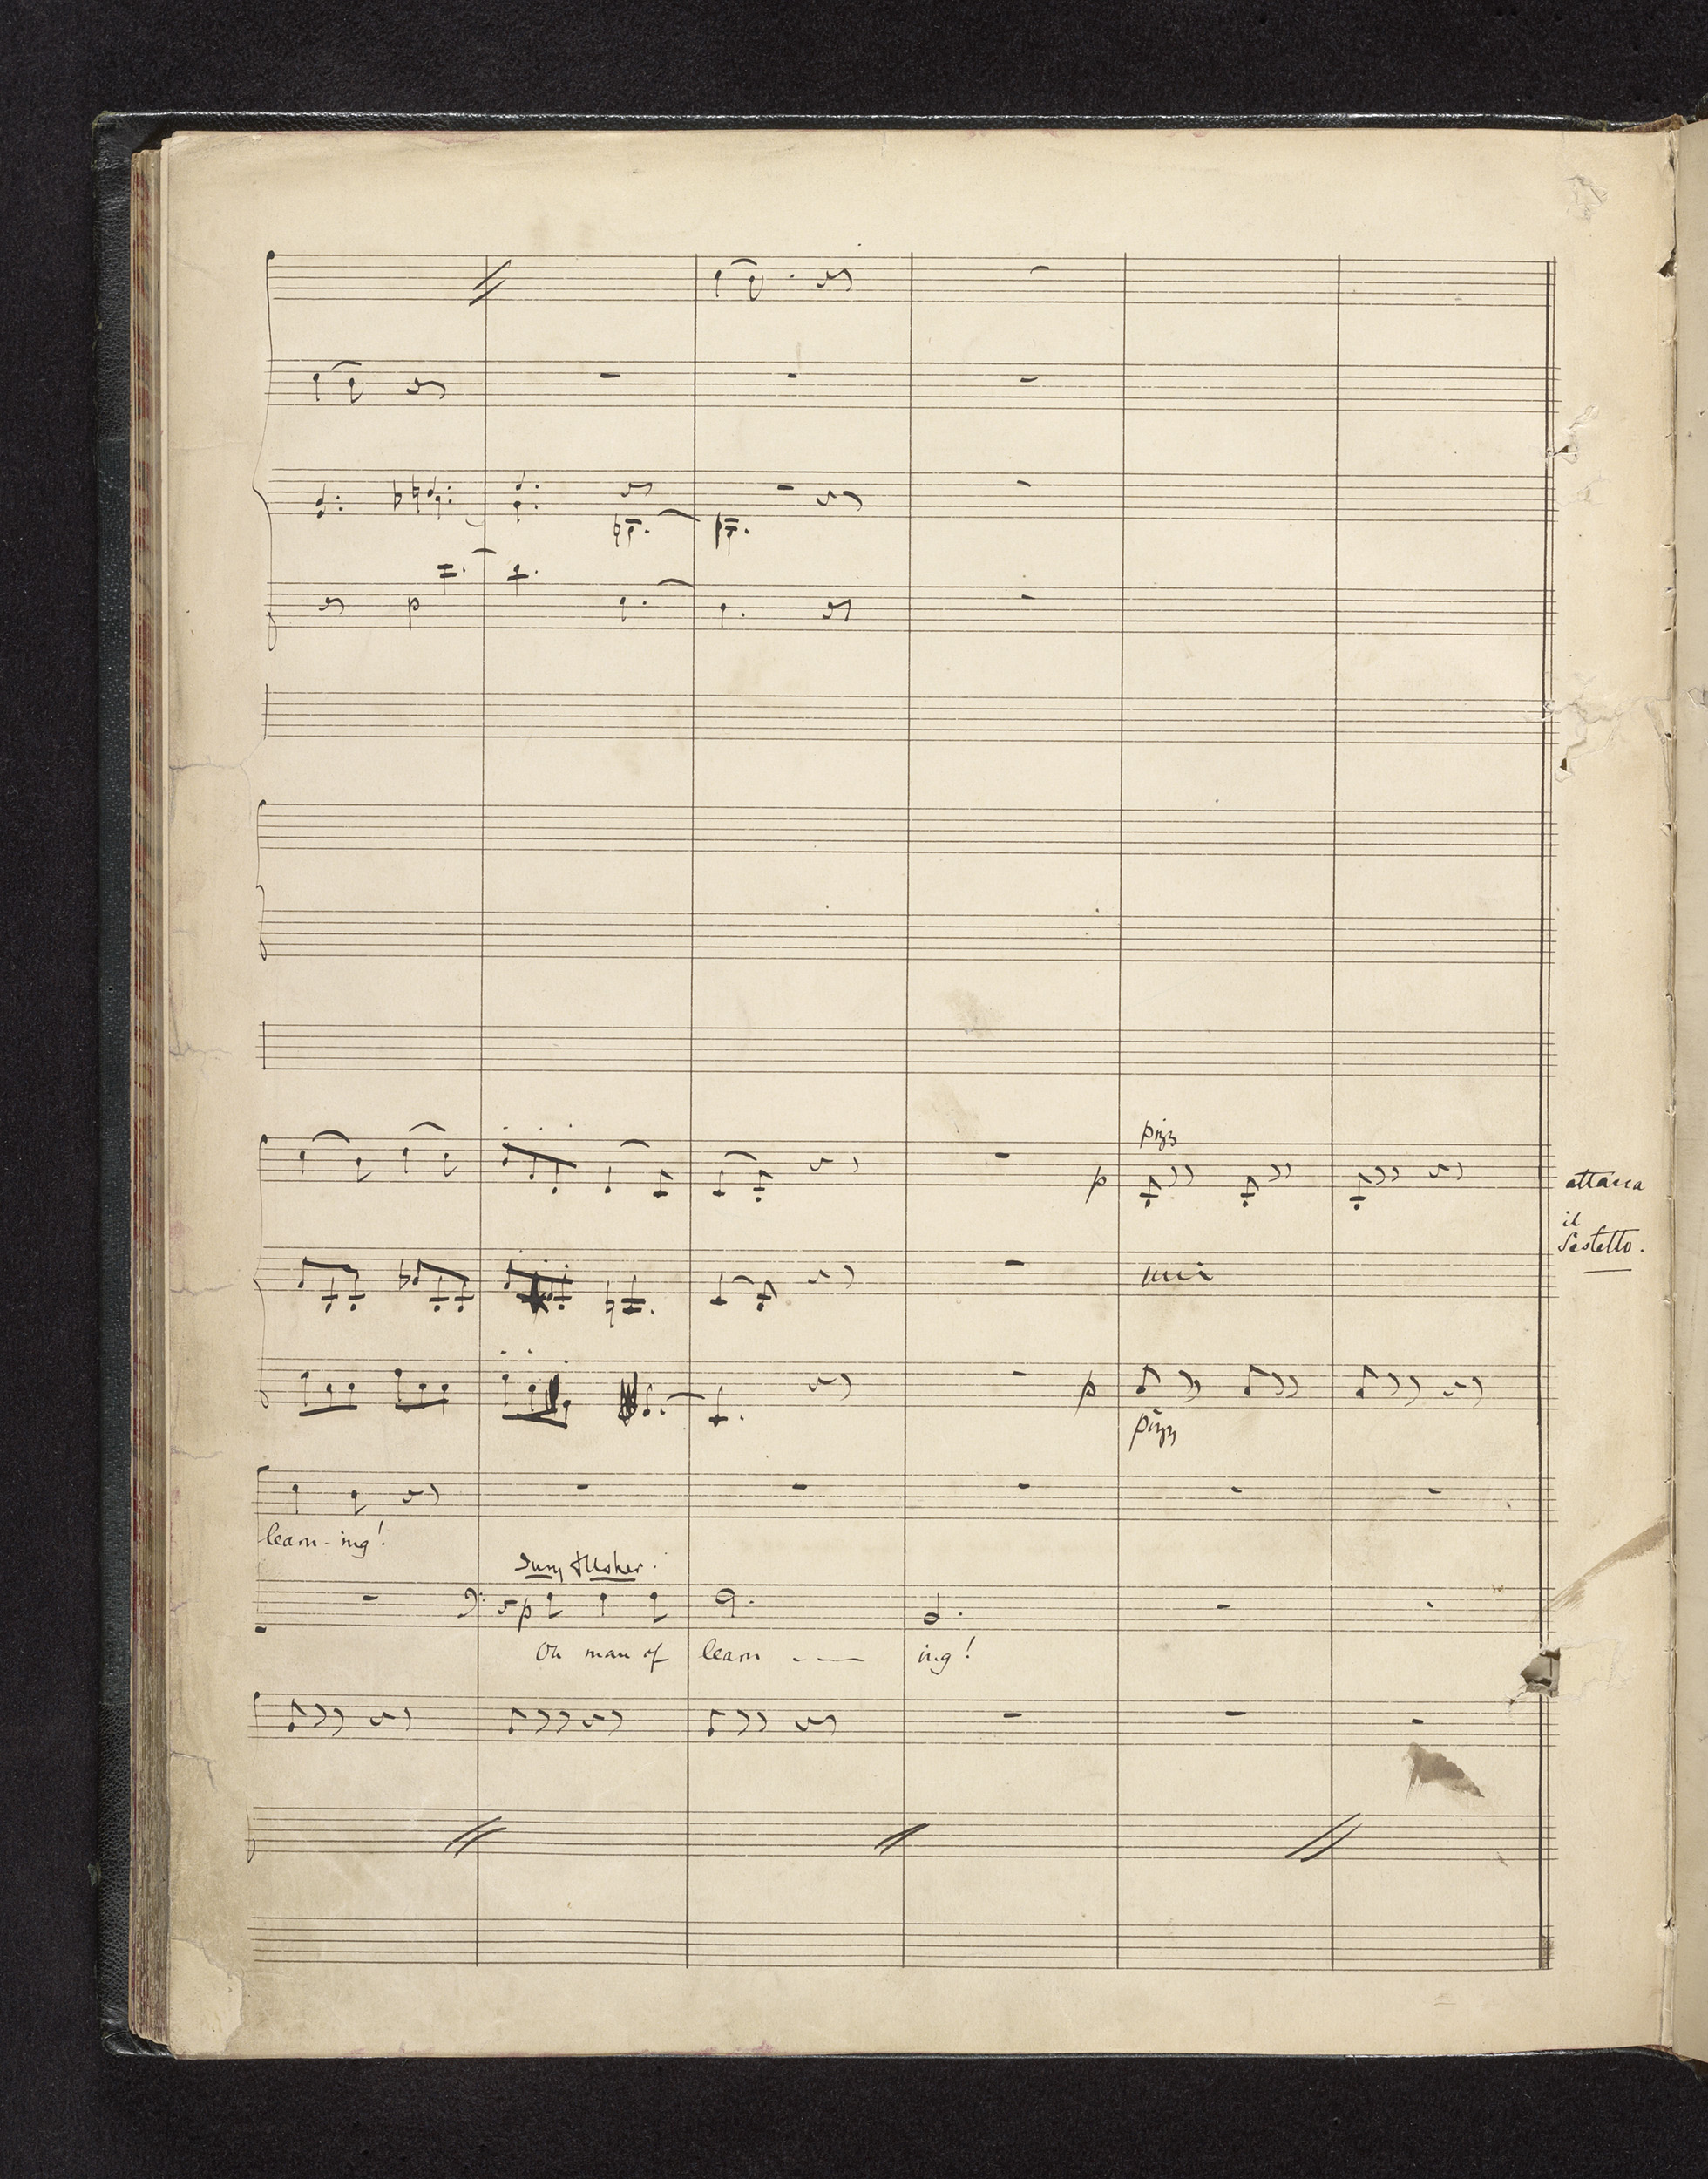 pizz
p
attacca
il
Sestetto.
uni
p
pizz
learn - ing!
Jury & Usher.
p
Oh man of learn - - - ing!